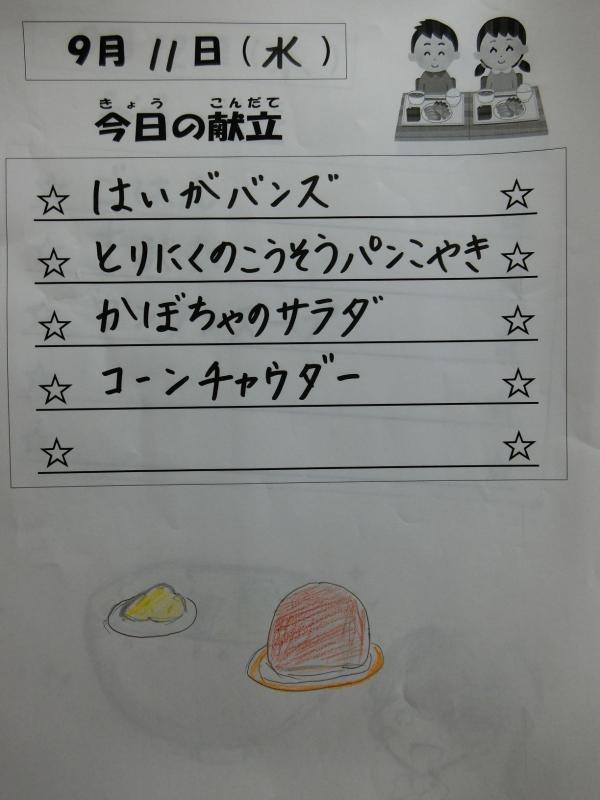 9月 11日(水)
きょう こんだて
今日の献立
☆ はいがバンズ ☆
☆ とりにくのこうそうパンこやき ☆
☆ かぼちゃのサラダ ☆
☆ コーンチャウダー ☆
☆ ☆